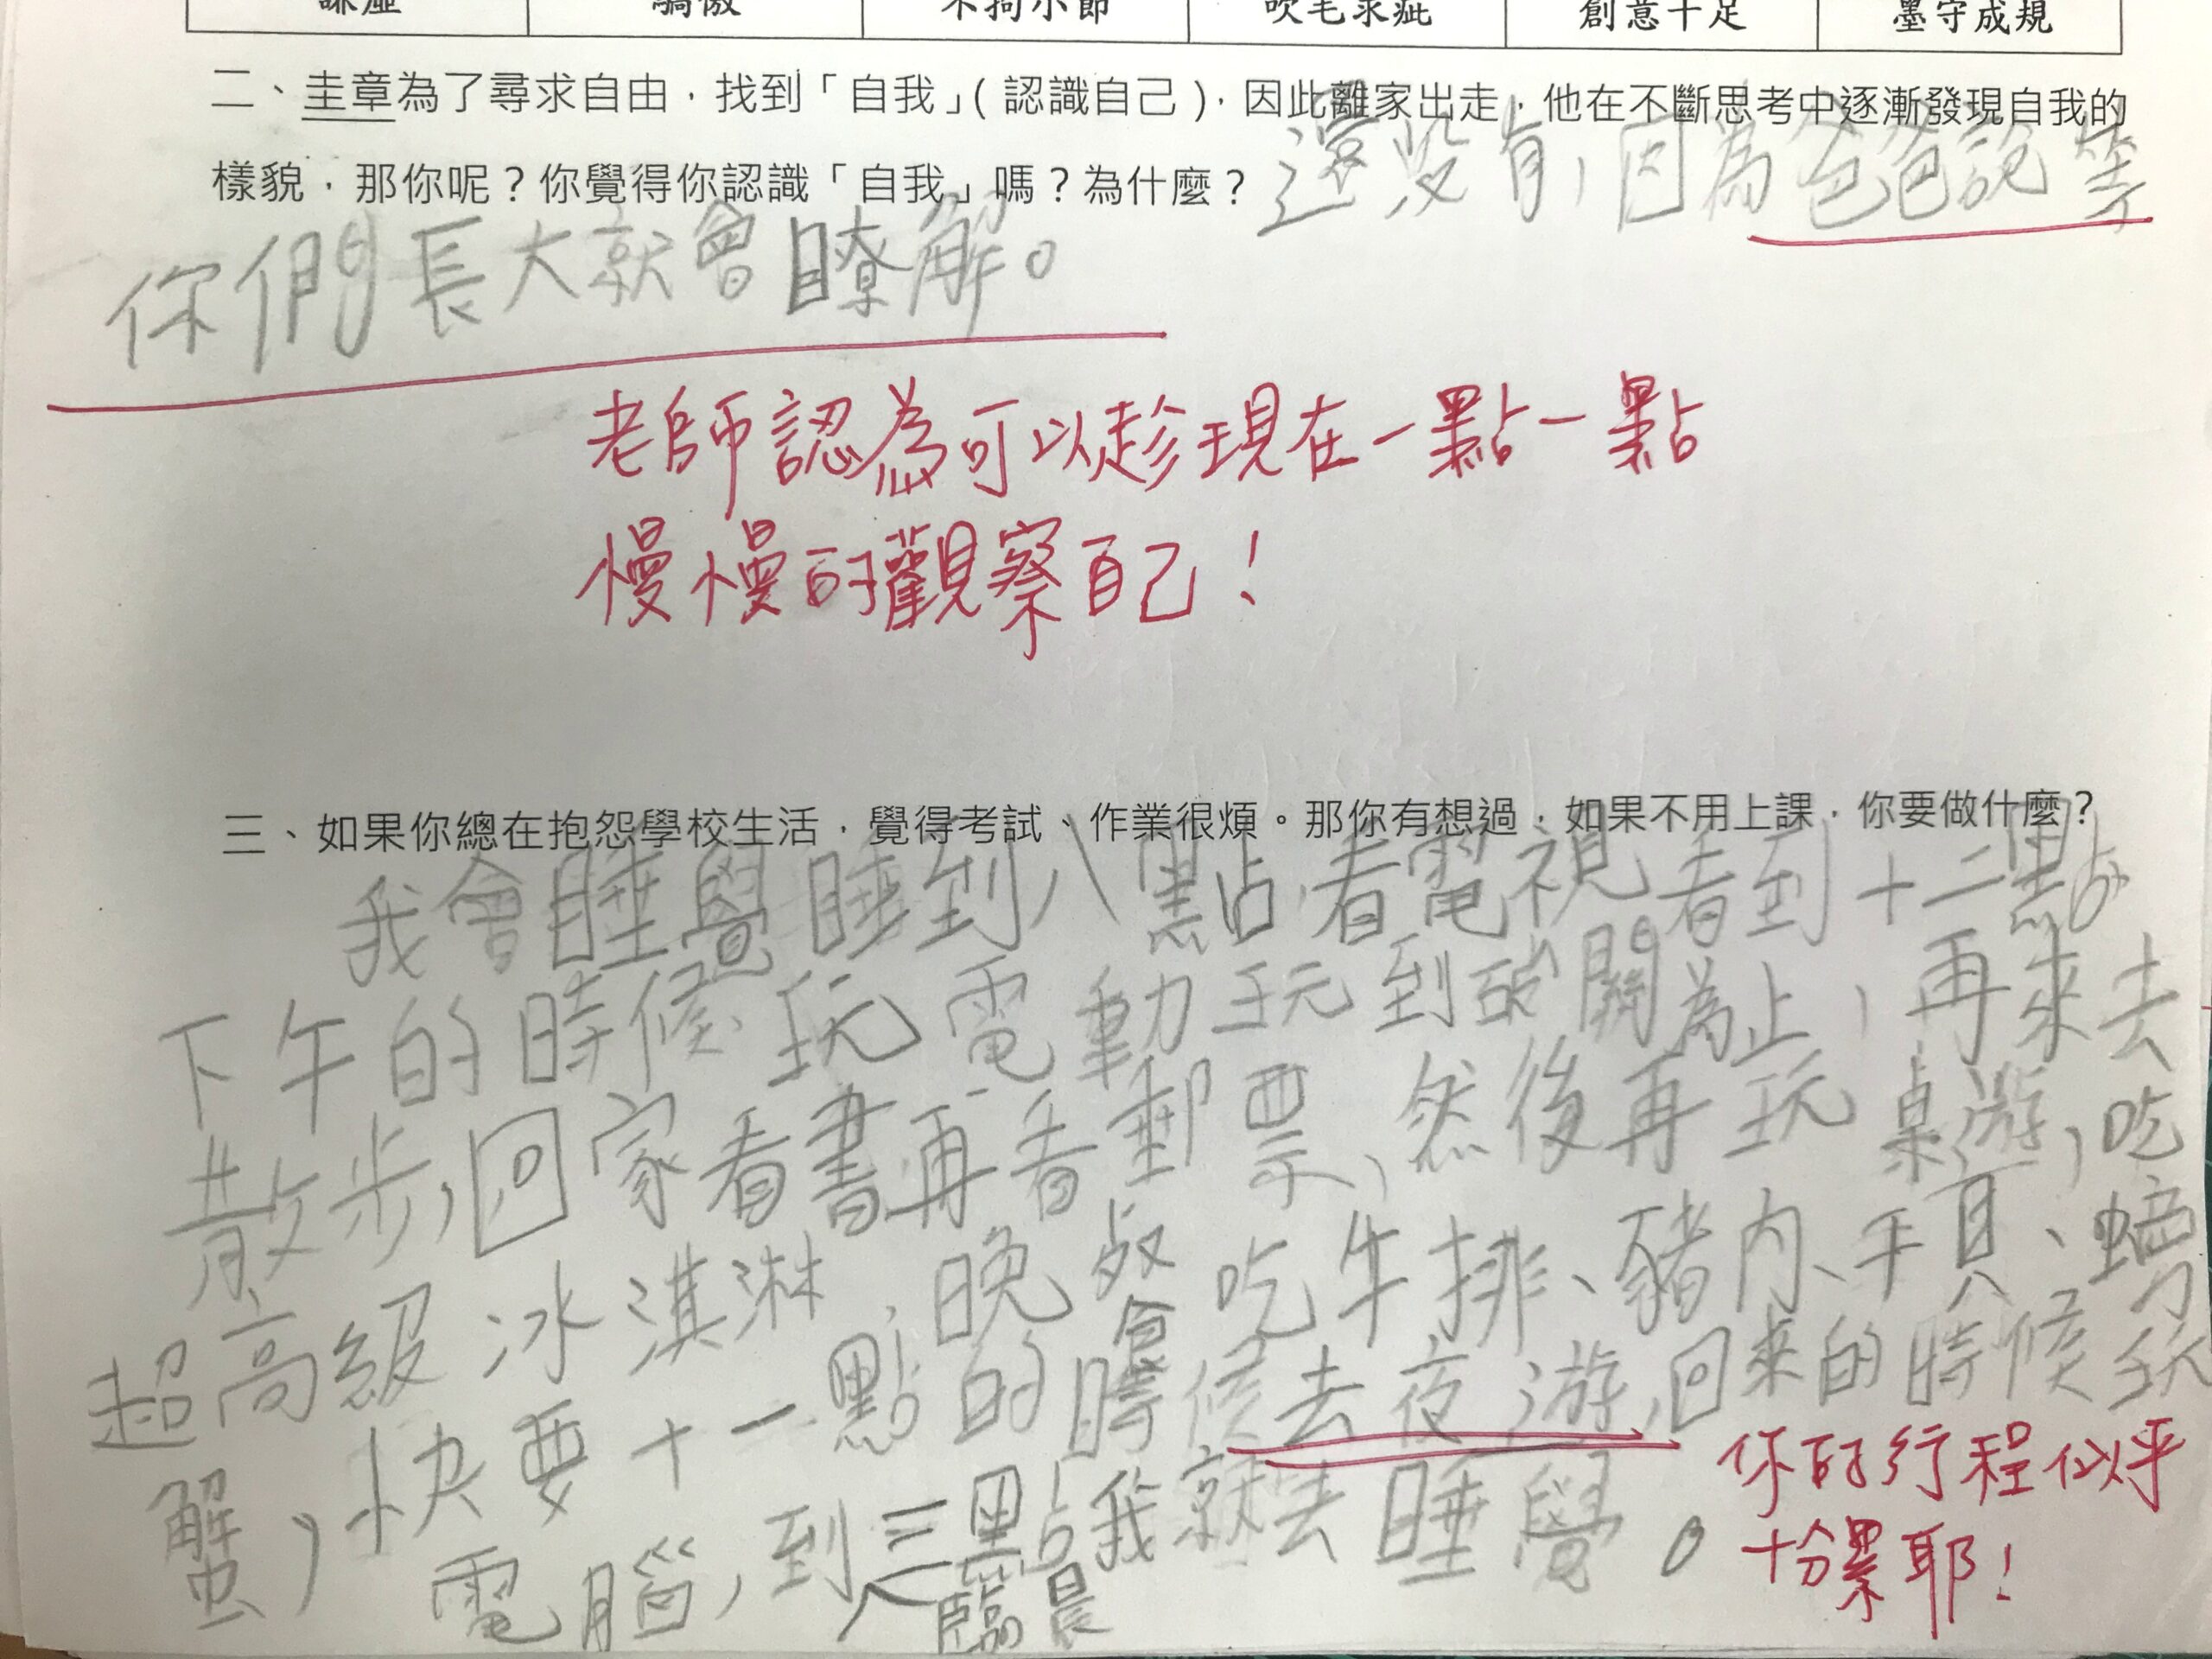 謙虛 驕傲 不拘小節 吹毛求疵 創意十足 墨守成規
二、圭章為了尋求自由，找到「自我」(認識自己)，因此離家出走，他在不斷思考中逐漸發現自我的
樣貌，那你呢？你覺得你認識「自我」嗎？為什麼？
還沒有，因為爸爸說等
你們長大就會瞭解。
老師認為可以趁現在一點一點
慢慢的觀察自己！
三、如果你總在抱怨學校生活，覺得考試、作業很煩。那你有想過，如果不用上課，你要做什麼？
我會睡覺睡到八點，看電視看到十二點，
下午的時候玩電動玩到破關為止，再來去
散步，回家看書再看郵票，然後再玩桌游，吃
超高級冰淇淋，晚餐吃牛排、豬肉、干貝、螃
蟹，快要十一點的時候去夜游，回來的時候玩
電腦，到凌晨三點我就去睡覺。
你的行程似乎
十分累耶！